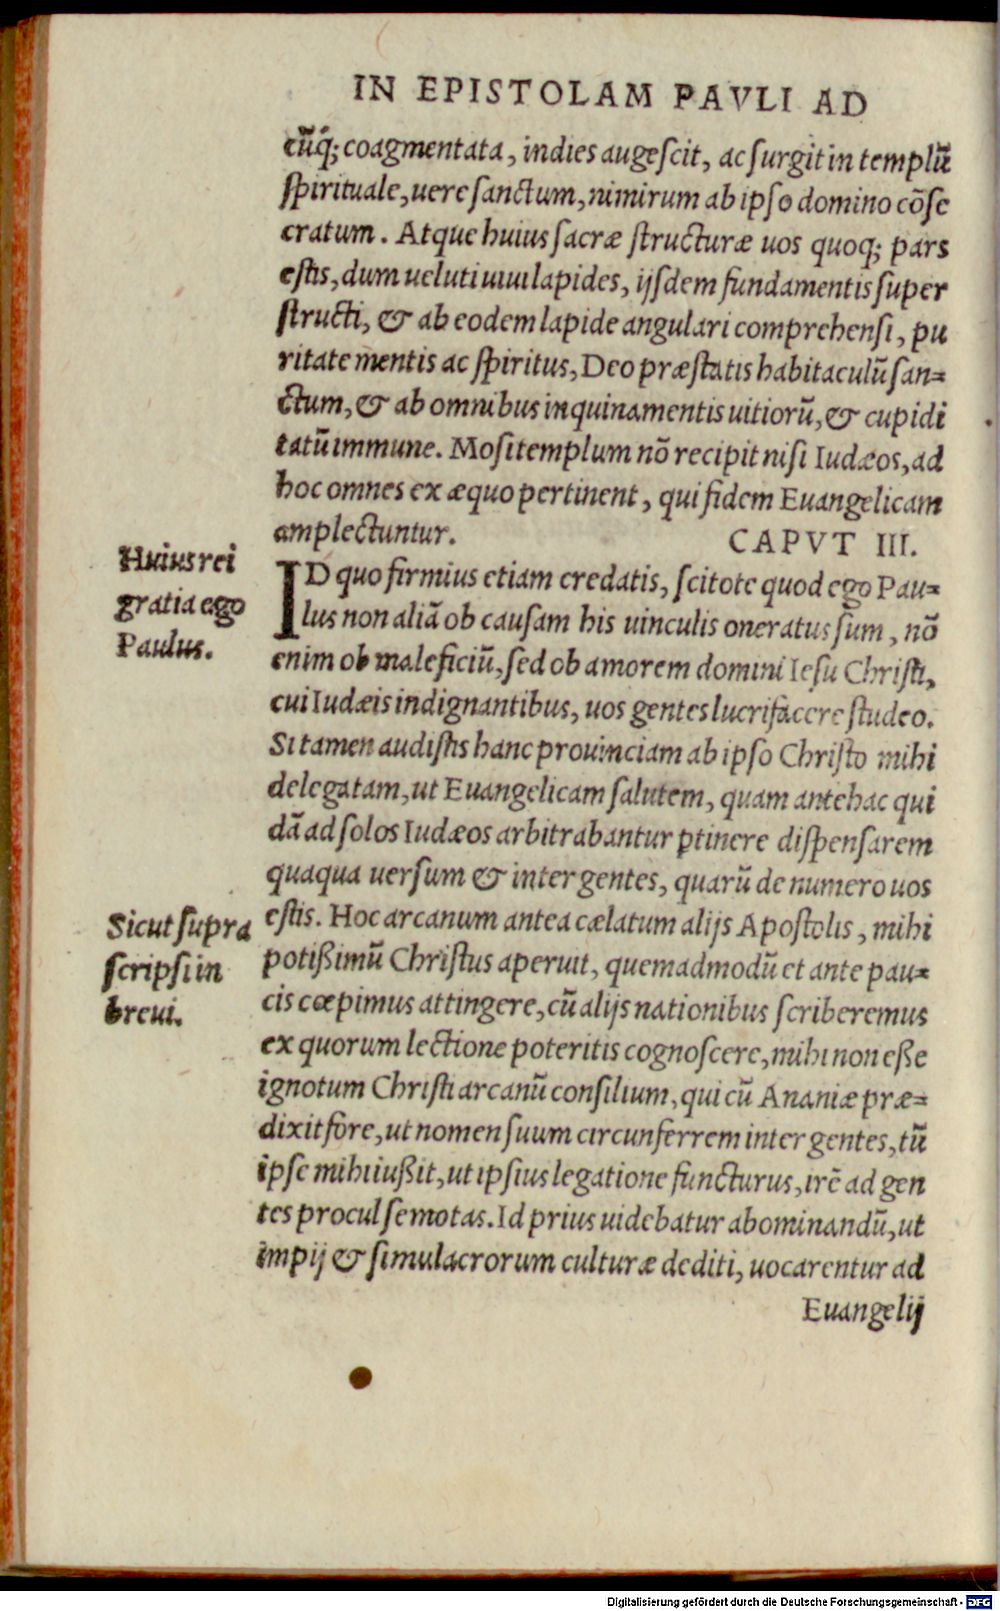 IN EPISTOLAM PAVLI AD
cũq́; coagmentata, indies augescit, ac surgit in templũ
spirituale, uere sanctum, nimirum ab ipso domino cõse
cratum. Atque huius sacræ structuræ uos quoq; pars
estis, dum ueluti uiui lapides, ijsdem fundamentis super
structi, & ab eodem lapide angulari comprehensi, pu
ritate mentis ac spiritus, Deo præstatis habitaculũ san=
ctum, & ab omnibus inquinamentis uitiorũ, & cupidi
tatũ immune. Mosi templum nõ recipit nisi Iudæos, ad
hoc omnes ex æquo pertinent, qui fidem Euangelicam
amplectuntur.
CAPVT III.
Huius rei
gratia ego
Paulus.
ID quo firmius etiam credatis, scitote quod ego Pau=
lus non aliã ob causam his uinculis oneratus sum, nõ
enim ob maleficiũ, sed ob amorem domini Iesu Christi,
cui Iudæis indignantibus, uos gentes lucrifacere studeo.
Si tamen audistis hanc prouinciam ab ipso Christo mihi
delegatam, ut Euangelicam salutem, quam antehac qui
dã ad solos Iudæos arbitrabantur ꝑtinere dispensarem
quaqua uersum & inter gentes, quarũ de numero uos
Sicut supra
scripsi in
breui.
estis. Hoc arcanum antea cælatum alijs Apostolis, mihi
potißimũ Christus aperuit, quemadmodũ et ante pau=
cis cœpimus attingere, cũ alijs nationibus scriberemus
ex quorum lectione poteritis cognoscere, mihi non eße
ignotum Christi arcanũ consilium, qui cũ Ananiæ præ=
dixit fore, ut nomen suum circunferrem inter gentes, tũ
ipse mihi iußit, ut ipsius legatione functurus, irẽ ad gen
tes procul semotas. Id prius uidebatur abominandũ, ut
impij & simulacrorum culturæ dediti, uocarentur ad
Euangelij
Digitalisierung gefördert durch die Deutsche Forschungsgemeinschaft - DFG